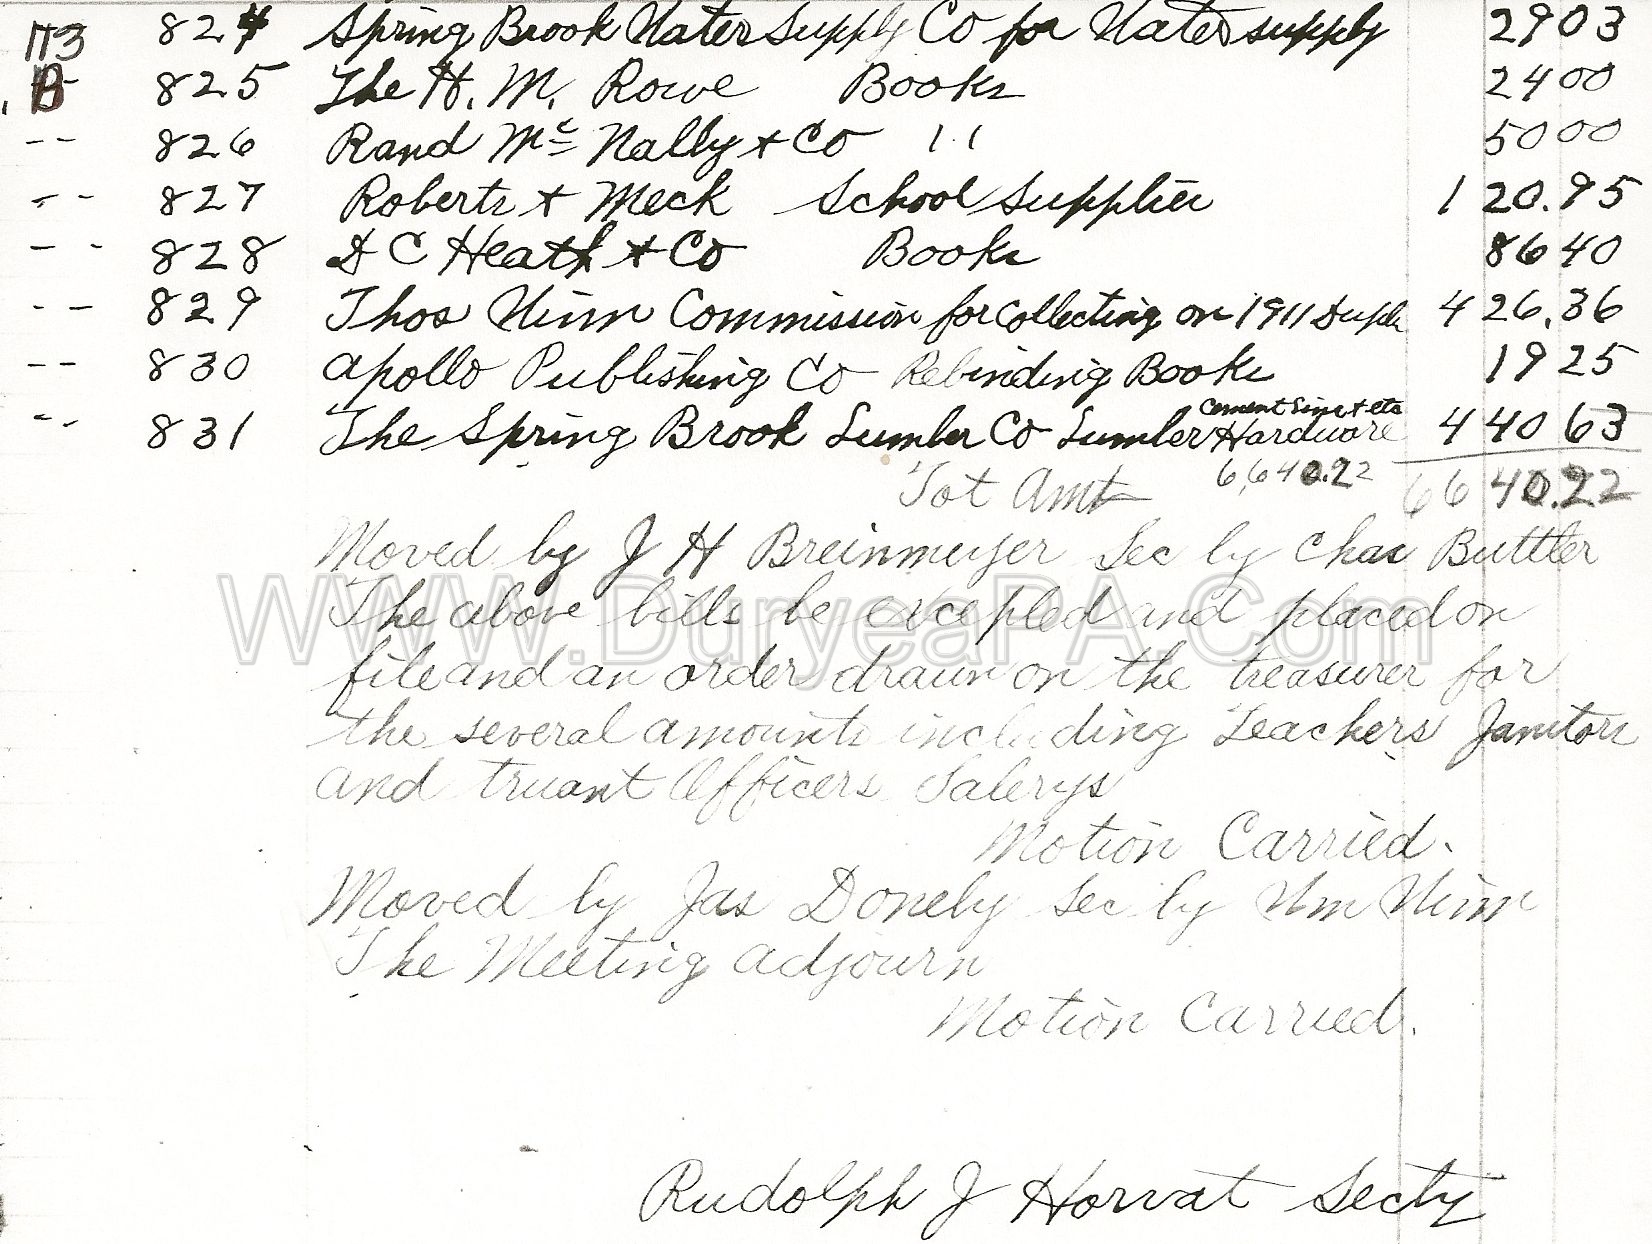 173 824 Spring Brook Water Supply Co for Water supply 29 03
B 825 The H. M. Rowe Books 24 00
-- 826 Rand Mc Nally & Co 11 50 00
-- 827 Roberts & Meck School Supplies 1 20.95
-- 828 D C Heath & Co Books 86 40
-- 829 Thos Winn Commission for Collecting on 1911 Dupli 4 26.36
-- 830 Apollo Publishing Co Rebinding Books 19 25
cement Lime & etc
-- 831 The Spring Brook Lumber Co Lumber Hardware 4 40 63
Tot Amt 6,640.22 66 40.22
Moved by J H Breinmeyer Sec by Chas Buttler
The above bills be excepted and placed on
file and an order drawn on the treasurer for
the several amounts including Teachers Janitors
and truant Officers Salerys
Motion Carried.
Moved by Jas Donely Sec by Wm Winn
The Meeting adjourn
Motion Carried.
Rudolph J Horvat Secty
WWW.DuryeaPA.Com